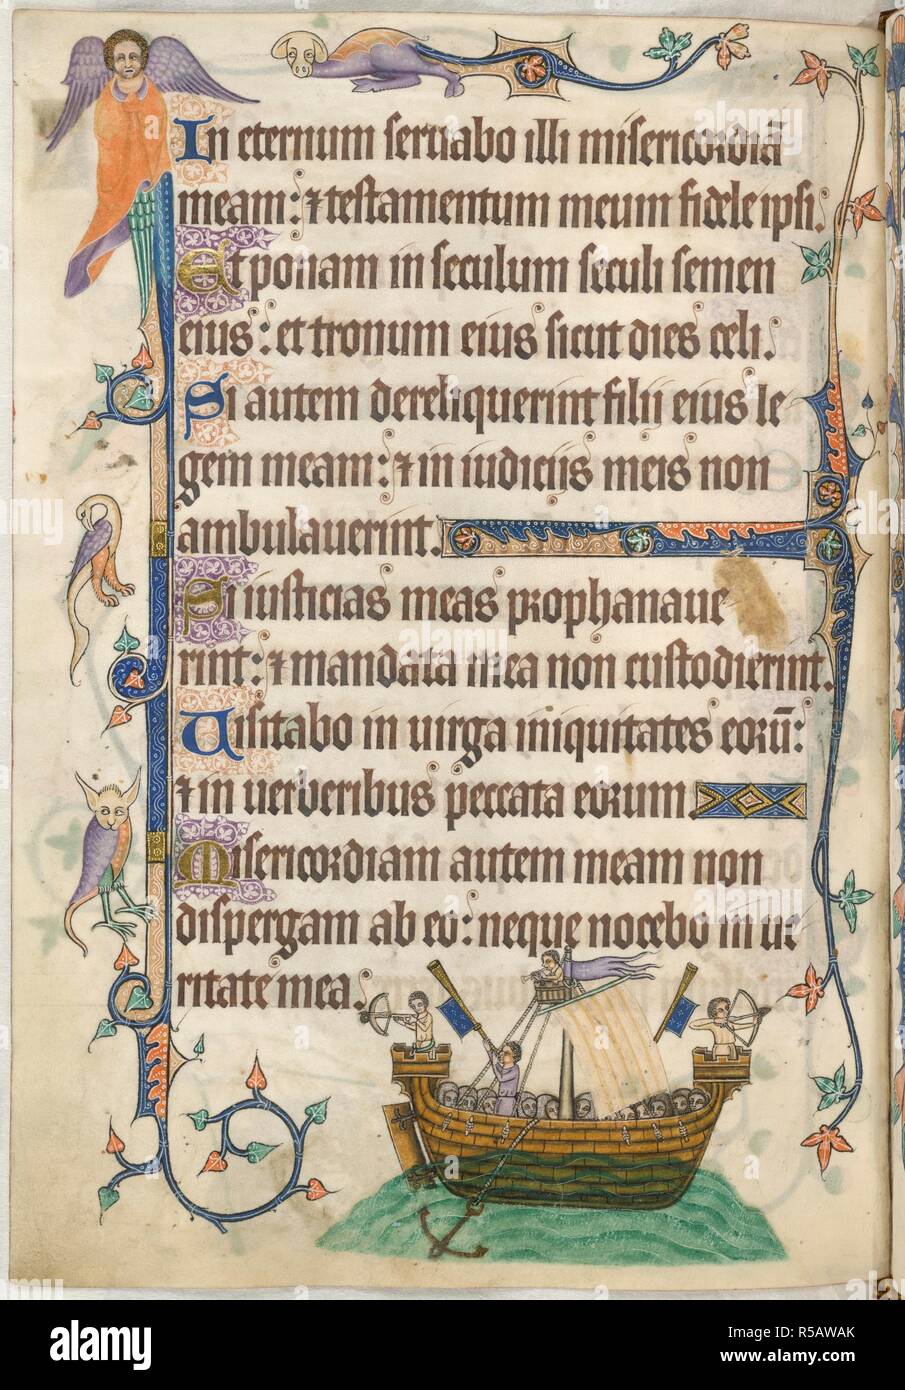 In eternum seruabo illi misericordiā
meam: ⁊ testamentum meum fidele ipsi.
Et ponam in seculum seculi semen
eius: et tronum eius sicut dies celi.
Si autem dereliquerint filii eius le
gem meam: ⁊ in iudiciis meis non
ambulauerint.
Si iusticias meas prophanaue
rint: ⁊ mandata mea non custodierint.
Uisitabo in uirga iniquitates eorū:
⁊ in uerberibus peccata eorum
Misericordiam autem meam non
dispergam ab eo: neque nocebo in ue
ritate mea.
alamy
Image ID: R5AWAK
www.alamy.com